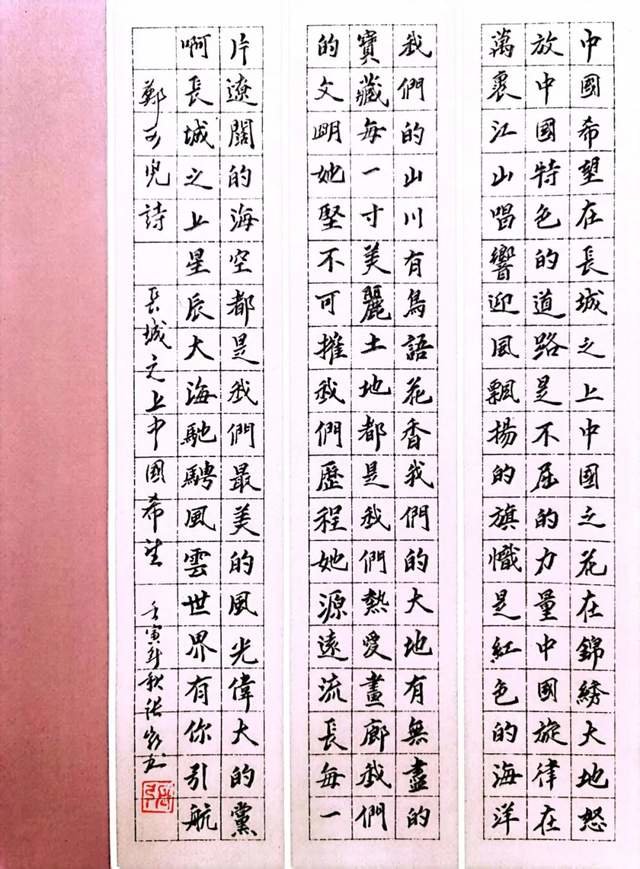 中國希望在長城之上中國之花在錦綉大地怒
放中國特色的道路是不屈的力量中國旋律在
萬裏江山唱響迎風飄揚的旗幟是紅色的海洋
我們的山川有鳥語花香我們的大地有無盡的
寶藏每一寸美麗土地都是我們熱愛畫廊我們
的文明她堅不可摧我們歷程她源遠流長每一
片遼闊的海空都是我們最美的風光偉大的黨
啊長城之上星辰大海馳騁風雲世界有你引航
鄭可詩 長城之上中國希望 壬寅年秋張書